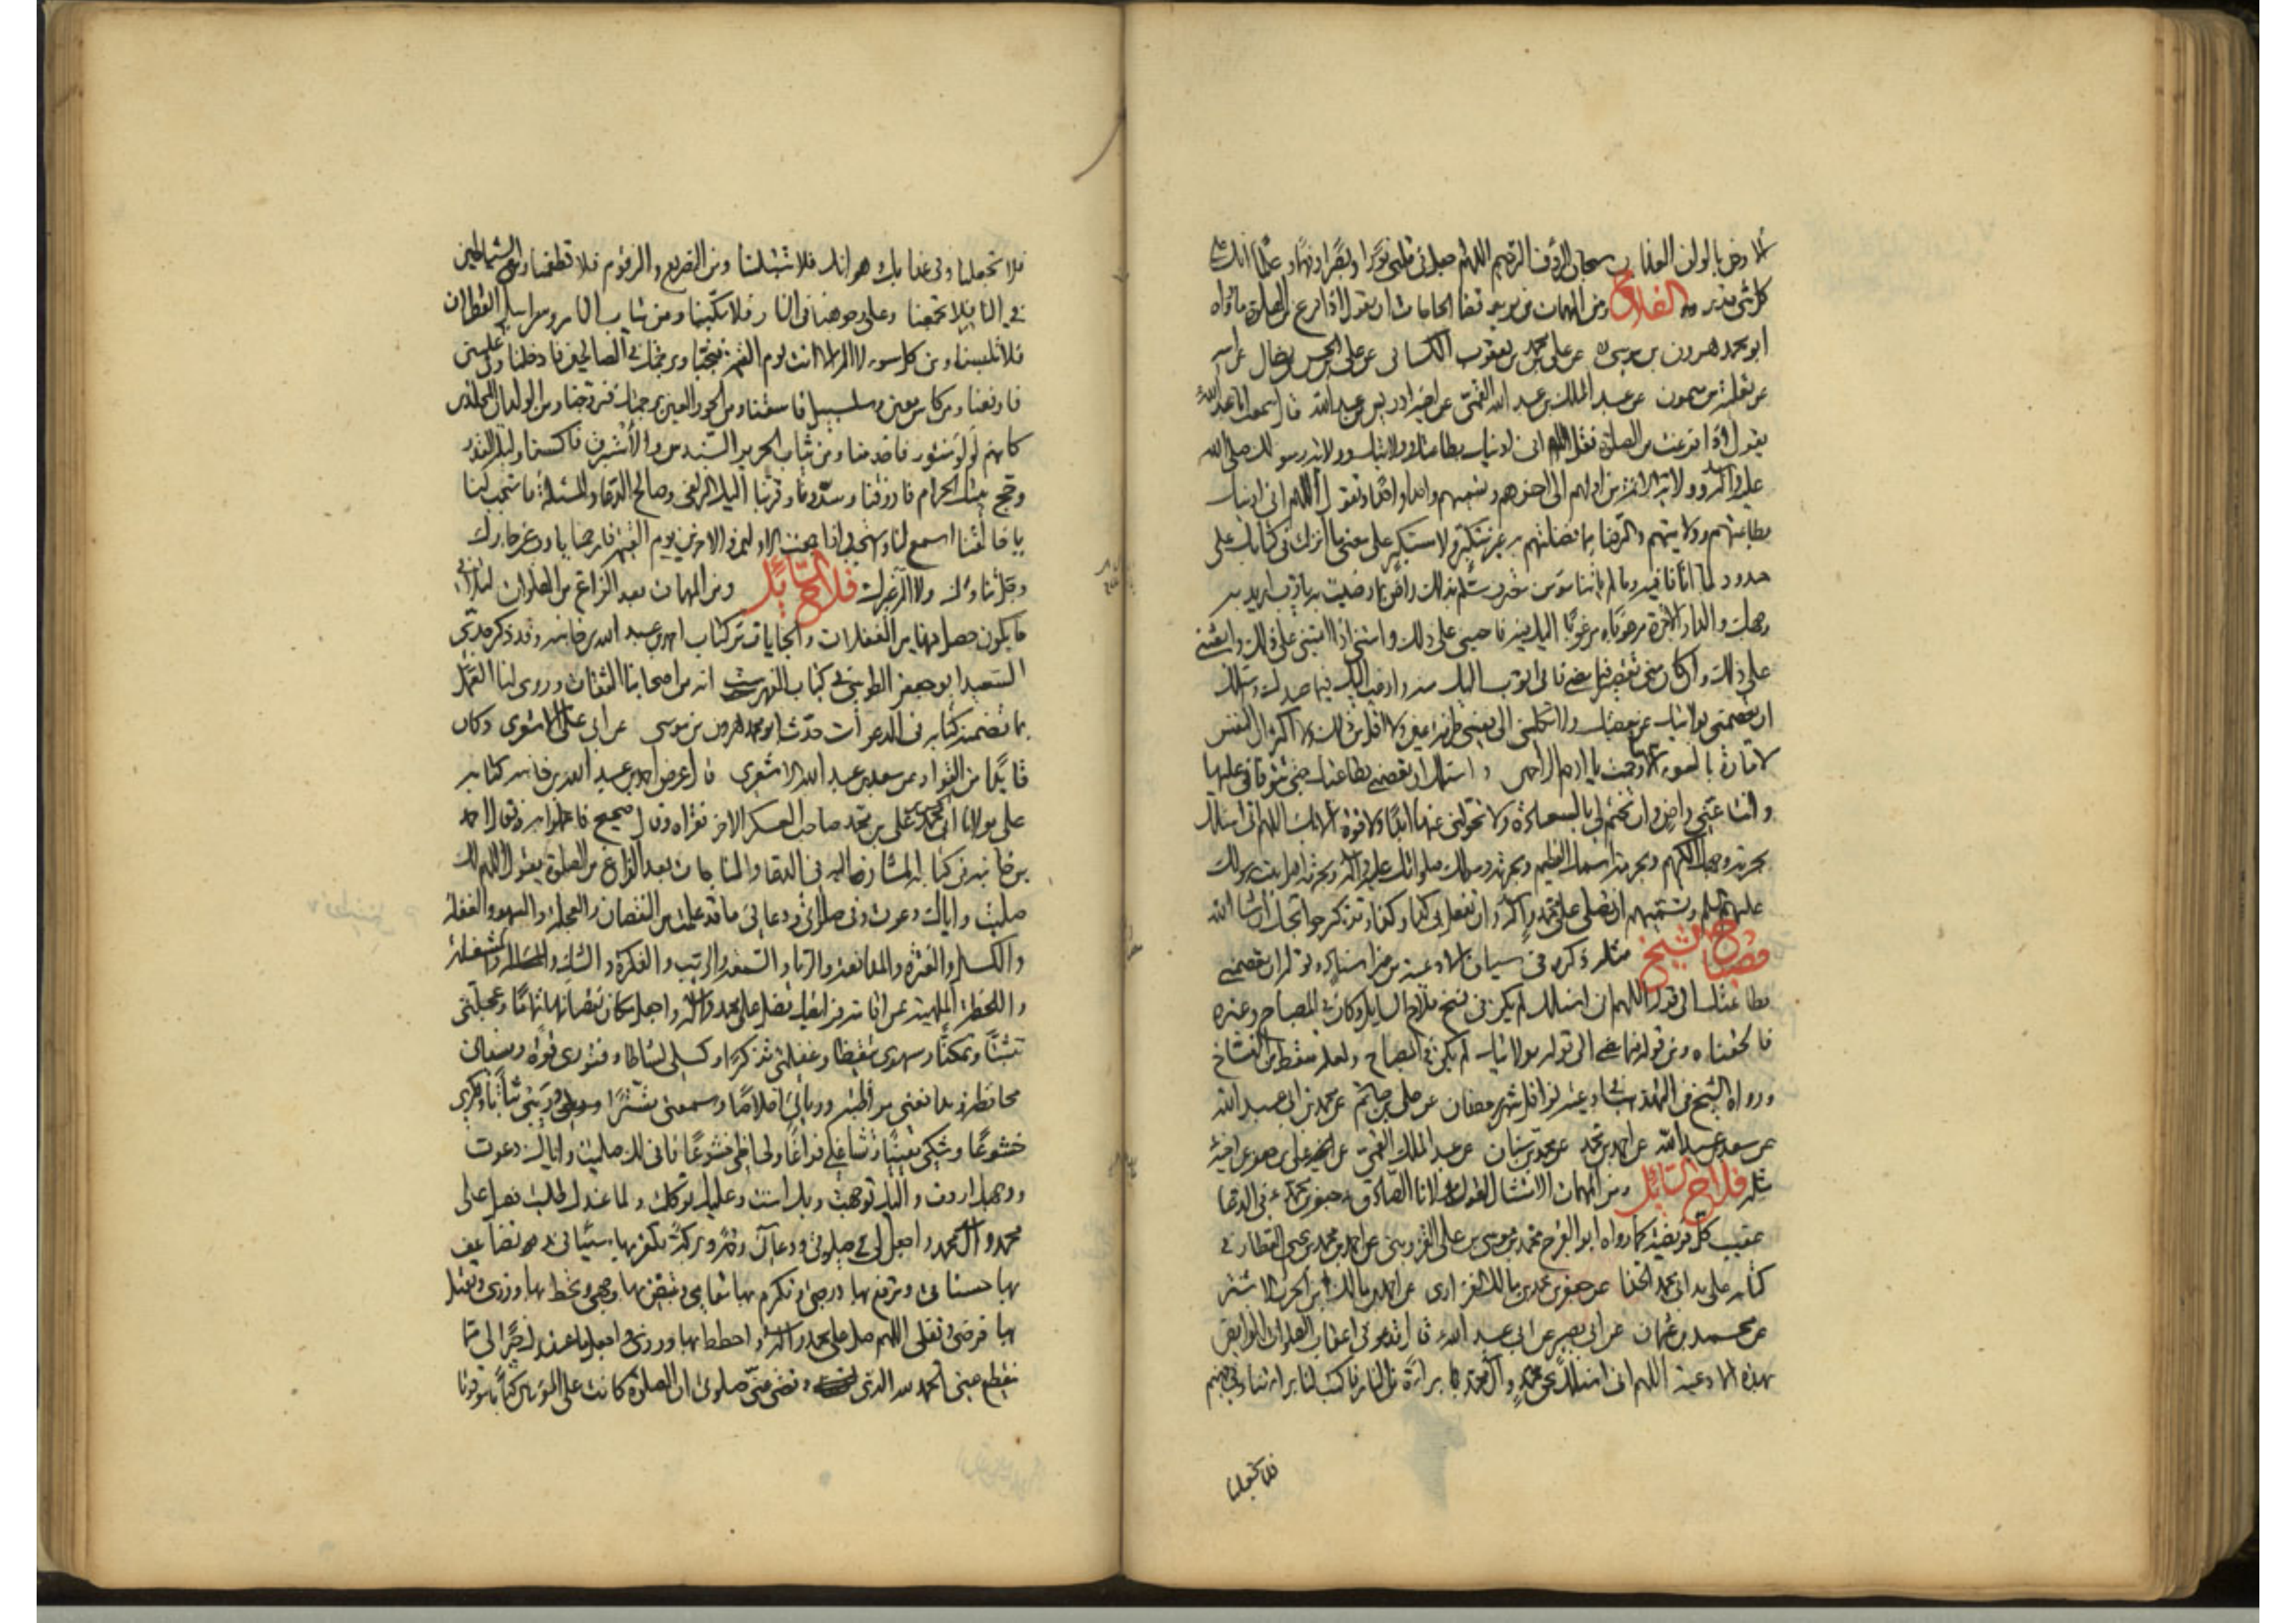 الارض بالوان العذاب سبحان الرؤف الرحيم اللهم اجعل لي في قلبي نورا وبصرا وفهما وعلما انك على
كل شئ قدير الفلاح ومن المهمات لمن يريد قضا الحاجات ان يقول اذا فرغ من الصلوة ما رواه
ابو محمد هرون بن موسى ره عن علي بن محمد بن يعقوب الكسائي عن علي بن الحسن بن فضال عن ابيه
عن ثعلبة بن ميمون عن عبد الملك بن عبد الله القمي عن اخيه ادريس بن عبد الله قال سمعت ابا عبد الله
يقول اذا فرغت من الصلوة فقل اللهم اني ادينك بطاعتك وولايتك وولاية رسولك صلى الله
عليه واله وولاية الائمة من اولهم الى اخرهم وتسميهم واحدا واحدا وتقول اللهم اني ادينك
بطاعتهم وولايتهم والرضا بما فضلتهم به غير متكبر ولا مستكبر على معنى ما انزلت في كتابك على
حدود ما اتانا فيه وما لم ياتنا مؤمن معترف مسلم بذلك راض بما رضيت به يا رب اريد به
وجهك والدار الاخرة مرهوبا ومرغوبا اليك فيه فاحيني على ذلك وامتني اذا امتني على ذلك وابعثني
على ذلك وان كان مني تقصير فيما مضى فاني اتوب اليك منه وارغب اليك فيما عندك واسئلك
ان تعصمني بولايتك عن معصيتك ولا تكلني الى نفسي طرفة عين ولا اقل من ذلك ولا اكثر ان النفس
لامارة بالسوء الا ما رحمت يا ارحم الراحمين واسئلك ان تعصمني بطاعتك حتى تتوفاني عليها
وانت عني راض وان تختم لي بالسعادة ولا تحولني عنها ابدا ولا قوة الا بك اللهم اني اسئلك
بحرمة وجهك الكريم وبحرمة اسمك العظيم وبحرمة رسولك صلواتك عليه واله وبحرمة اهل بيت رسولك
عليهم السلم وتسميهم ان تصلي على محمد وآله وان تفعل بي كذا وكذا وتذكر حوائجك ان شا الله
مصباح الشيخ مثله ذكره في سياق الادعية من غير اسناد وقوله ان تعصمني
بطاعتك الى قوله اللهم اني اسئلك لم يكن في نسخ فلاح السائل وكان في المصباح وغيره
فالحقناه ومن قوله فيما مضى الى قوله بولايتك لم يكن في المصباح ولعله سقط من النساخ
ورواه الشيخ في التهذيب في ادعية نوافل شهر رمضان عن علي بن حاتم عن محمد بن ابي عبد الله
عن سعد بن عبد الله عن احمد بن محمد عن محمد بن سنان عن عبد الملك القمي عن اخيه
مثله فلاح السائل ومن المهمات الامتثال لقول مولانا الصادق جعفر بن محمد ع في الدعا
عقيب كل فريضة كما رواه ابو الفرج محمد بن موسى بن علي القزويني عن احمد بن محمد بن يحيى العطار في
كتابه عن جعفر بن محمد بن مالك الفزاري
عن محمد بن عثمان عن ابي بصير عن ابي عبد الله ع قال تدعو في اعقاب الصلوات الفرايض
بهذه الادعية اللهم اني اسئلك بحق محمد وآل محمد براءة من النار فاكتب لنا براءتنا وفي جهنم
فلا تجعلنا
فلا تجعلنا وفي عذابك وهوانك فلا تبتلنا ومن الضريع والزقوم فلا تطعمنا ومع الشياطين
في النار فلا تجمعنا وعلى وجوهنا في النار فلا تكبنا ومن ثياب النار وسرابيل القطران
فلا تلبسنا ومن كل سوء لا اله الا انت يوم القيمة فنجنا وبرحمتك في الصالحين فادخلنا وفي عليين
فارفعنا ومن كاس معين وسلسبيل فاسقنا ومن الحور العين برحمتك فزوجنا ومن الولدان المخلدين
كانهم لؤلؤ منثور فاخدمنا ومن ثياب الحرير والسندس والاستبرق فاكسنا وليلة القدر
وحج بيتك الحرام فارزقنا وسددنا وقربنا اليك زلفى وصالح الدعا والمسئلة فاستجب لنا
يا خالقنا اسمع لنا واستجب واذا جمعت الاولين والاخرين يوم القيمة فارحمنا يا رب عز جارك
وجل ثناؤك ولا اله غيرك فلاح السائل ومن المهمات بعد الفراغ من الصلوات
ما يكون حصل فيها من الغفلات والجنايات من كتاب احمد بن عبد الله بن خانبه وقد ذكر جدي
السعيد ابو جعفر الطوسي في كتاب الفهرست انه من اصحابنا الثقات وروى لنا العمل
بما تضمنه كتابه في الدعوات حدثنا ابو محمد هرون بن موسى عن ابي علي الاشعري وكان
قائدا من القواد عن سعد بن عبد الله الاشعري قال عرض احمد بن عبد الله بن خانبه كتابه
على مولانا ابي محمد الحسن بن علي بن محمد صاحب العسكر الاخر فقراه وقال صحيح فاعملوا به فقال احمد
بن خانبه في كتابه المشار اليه في الدعا والمناجات بعد الفراغ من الصلوة يقول اللهم لك
صليت واياك دعوت وفي صلاتي ودعائي ما قد علمت من النقصان والعجلة والسهو والغفلة
والكسل والفترة والمدافعة والرياء والسمعة والريب والفكرة والشك والمشغلة
واللحظة الملهية عن اقامة فرائضك فصل على محمد وآله واجعل مكان نقصانها تماما وعجلتي
تثبتا وتمكنا وسهوي تيقظا وغفلتي تذكرا وكسلي نشاطا وفتوري قوة ونسياني
محافظة ومدافعتي مواظبة وريائي اخلاصا وسمعتي تسترا وريبي ثباتا وفكري
خشوعا وشكي يقينا وتشاغلي فراغا ولحاظي خشوعا فاني لك صليت واياك دعوت
ووجهك اردت واليك توجهت وبك امنت وعليك توكلت ولما عندك طلبت فصل على
محمد وآل محمد واجعل لي في صلوتي ودعائي رحمة وبركة تكفر بها سيئاتي وتضاعف
بها حسناتي وترفع بها درجتي وتكرم بها مقامي وتبيض بها وجهي وتحط بها وزري وتقبل
بها فرضي ونفلي اللهم صل على محمد وآله واحطط بها وزري واجعل ما عندك خيرا لي مما
ينقطع عني الحمد لله الذي قضى عني صلوتي ان الصلوة كانت على المؤمنين كتابا موقوتا